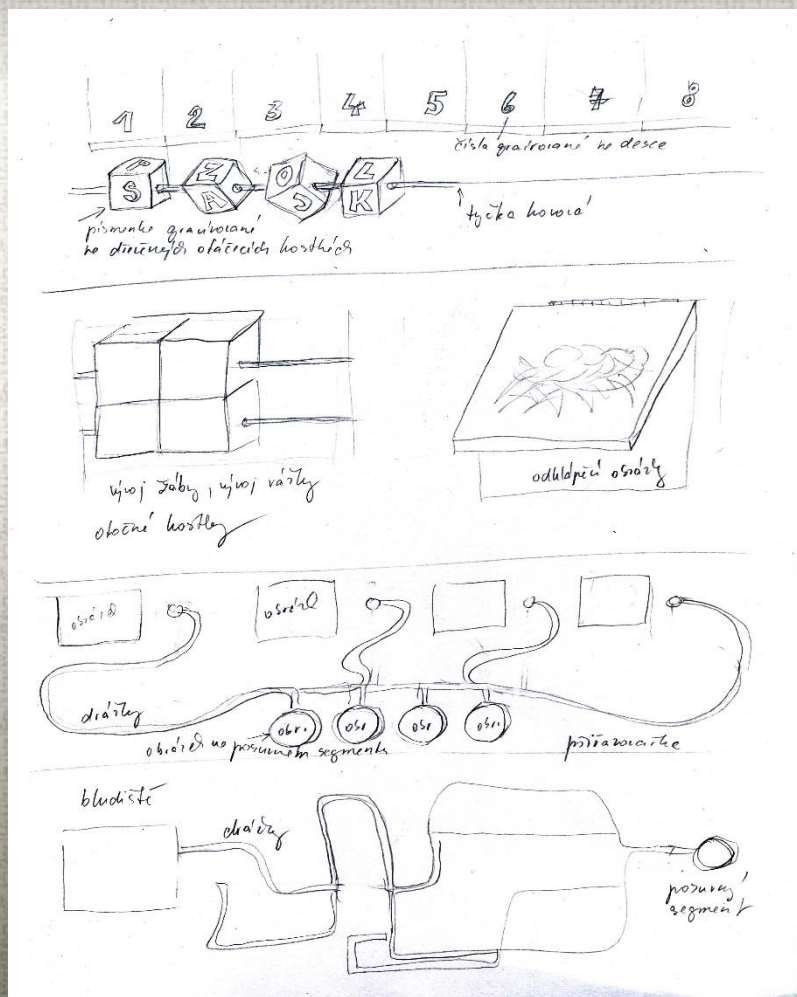 1 2 3 4 5 6 7 8
čísla gravírovaná na desce
P Z O L
S A J K
tyčka kovová
písmenka gravírovaná
na dřevěných otáčecích kostkách
vývoj žáby, vývoj vážky
otočné kostky
odklápěcí obrázky
obrázek obrázek
drážky
obr. obr. obr. obr.
obrázek na posuvném segmentu
přiřazovačka
bludiště
drážky
posuvný
segment